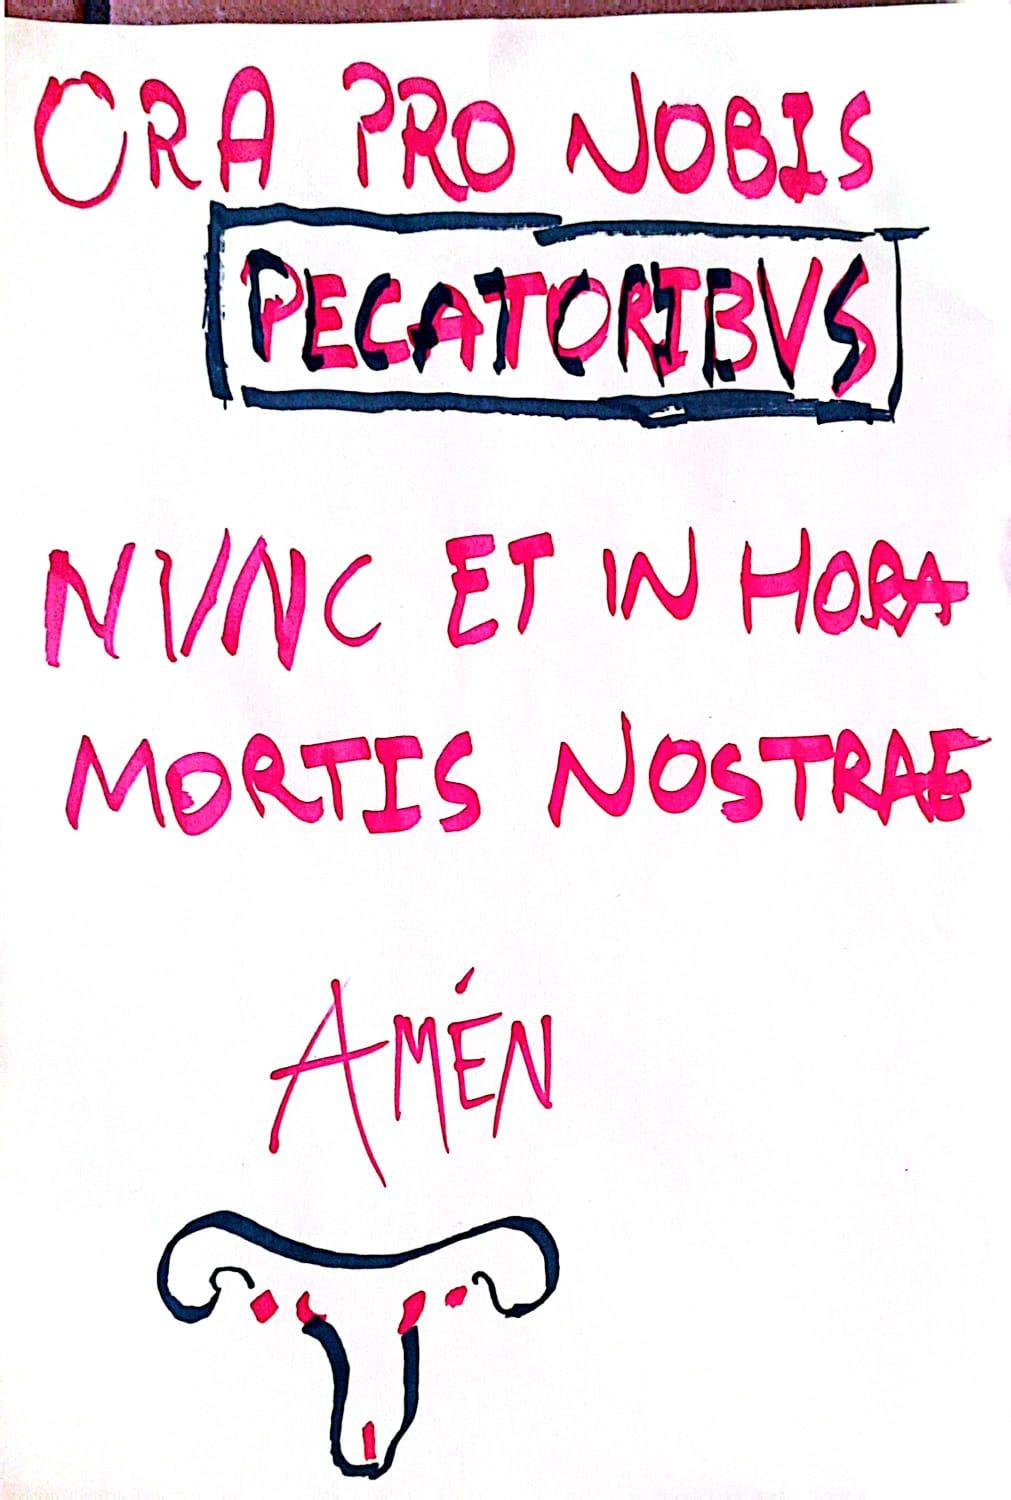 ORA PRO NOBIS
PECATORIBVS
NVNC ET IN HORA
MORTIS NOSTRAE
AMÉN